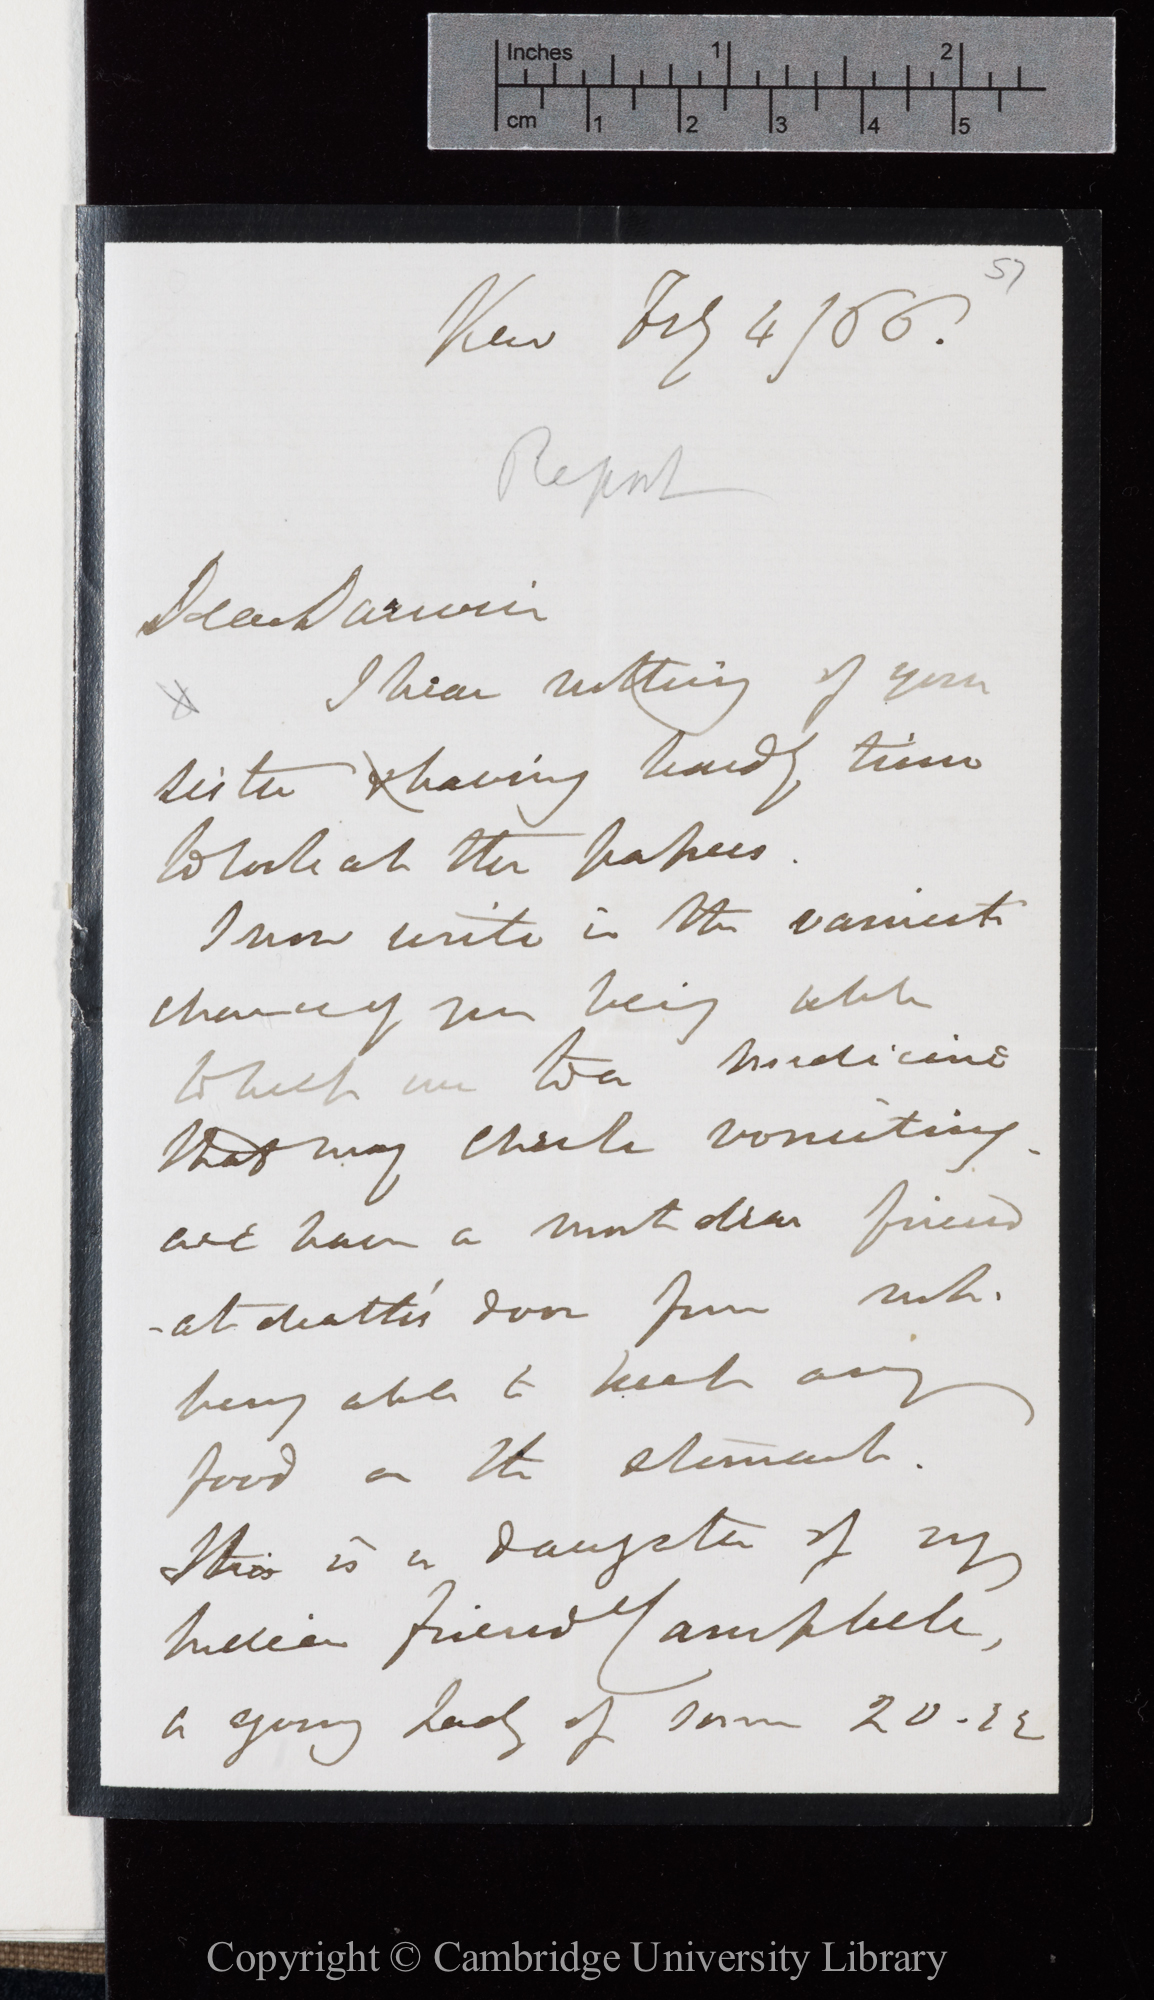 Inches 1 2
cm 1 2 3 4 5
57
Kew Feby 4/66.
Report
Dear Darwin
I hear nothing of your
sister & having hardly time
to look at the papers.
I now write in the vainest
chance of your being able
to help me to a medicine
that may check vomiting.
We have a most dear friend
at death's door from not
being able to keep any
food on the stomach.
This is a daughter of my
Indian friend Campbell,
a young Lady of some 20-22
Copyright © Cambridge University Library